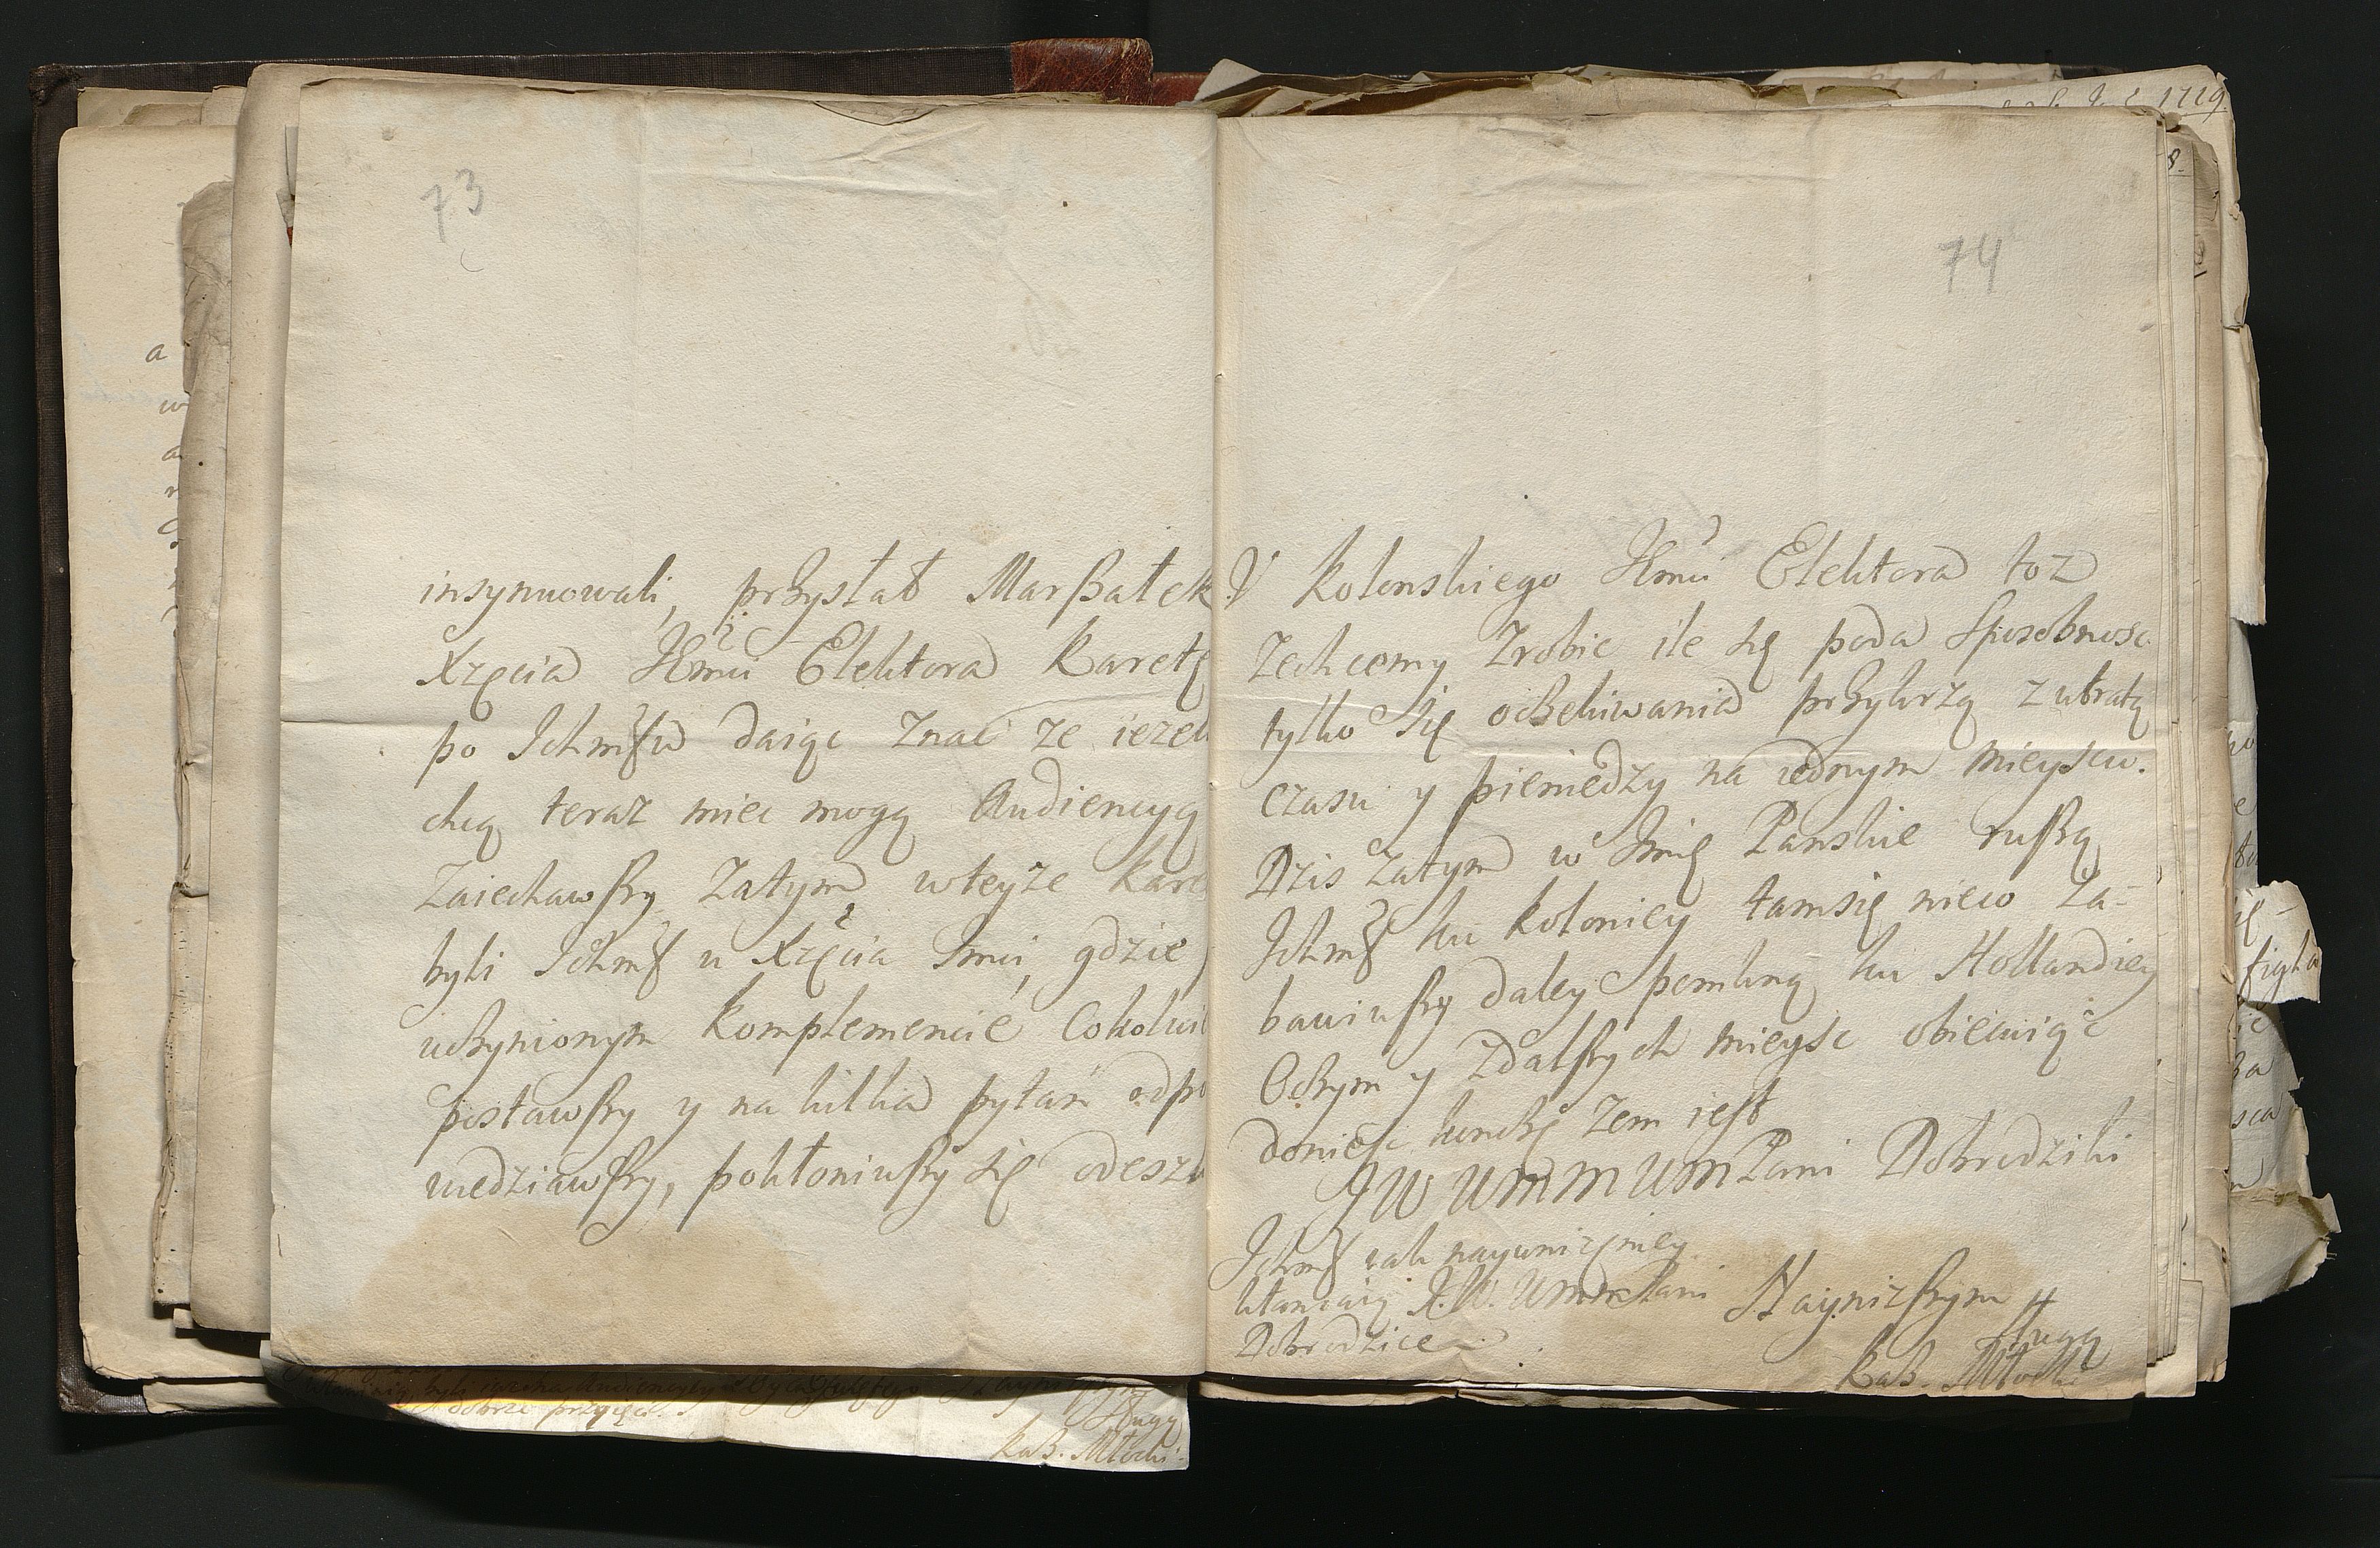 73
insynuowali, przysłał Marszałek
Xzęcia JEmci Elektora Karetę
po Ichmść daiąc znać ze ieżeli
chcą teraz miec mogą Audiencyą
Zaiechawszy Zatym wteyże kare
byli Ichmść u Xzęcia Jmci, gdzie
uczynionym Komplemencie Cokolwie
postawszy y na kilka pytań odpo
wiedziawszy, pokłoniwszy się odeszli
74
V Kolonskiego JEmci Elektora toz
Zechcemy Zrobic ile się poda Sposobnosc
tylko się oczekiwania przykrzą z utratą
czasu y pieniedzy na iednym mieyscu.
Dzis Zatym w Imię Panskie ruszą
Ichmść ku koloniey tamsię nieco Za-
bawiwszy daley pomkną ku Hollandiey
Oczym y Zdalszych mieysc obiecuiąc
donieść kończę Zem iest
JW WMM WMPani Dobrodziki
Ichmść iak nayunizeniey
kłaniaią J. W. WMMPani
Dobrodzice
Nayniższym
sługą
Kaz. Młocki
1719
8.
dobrze przyięci.
sługą
Kaz. Młocki